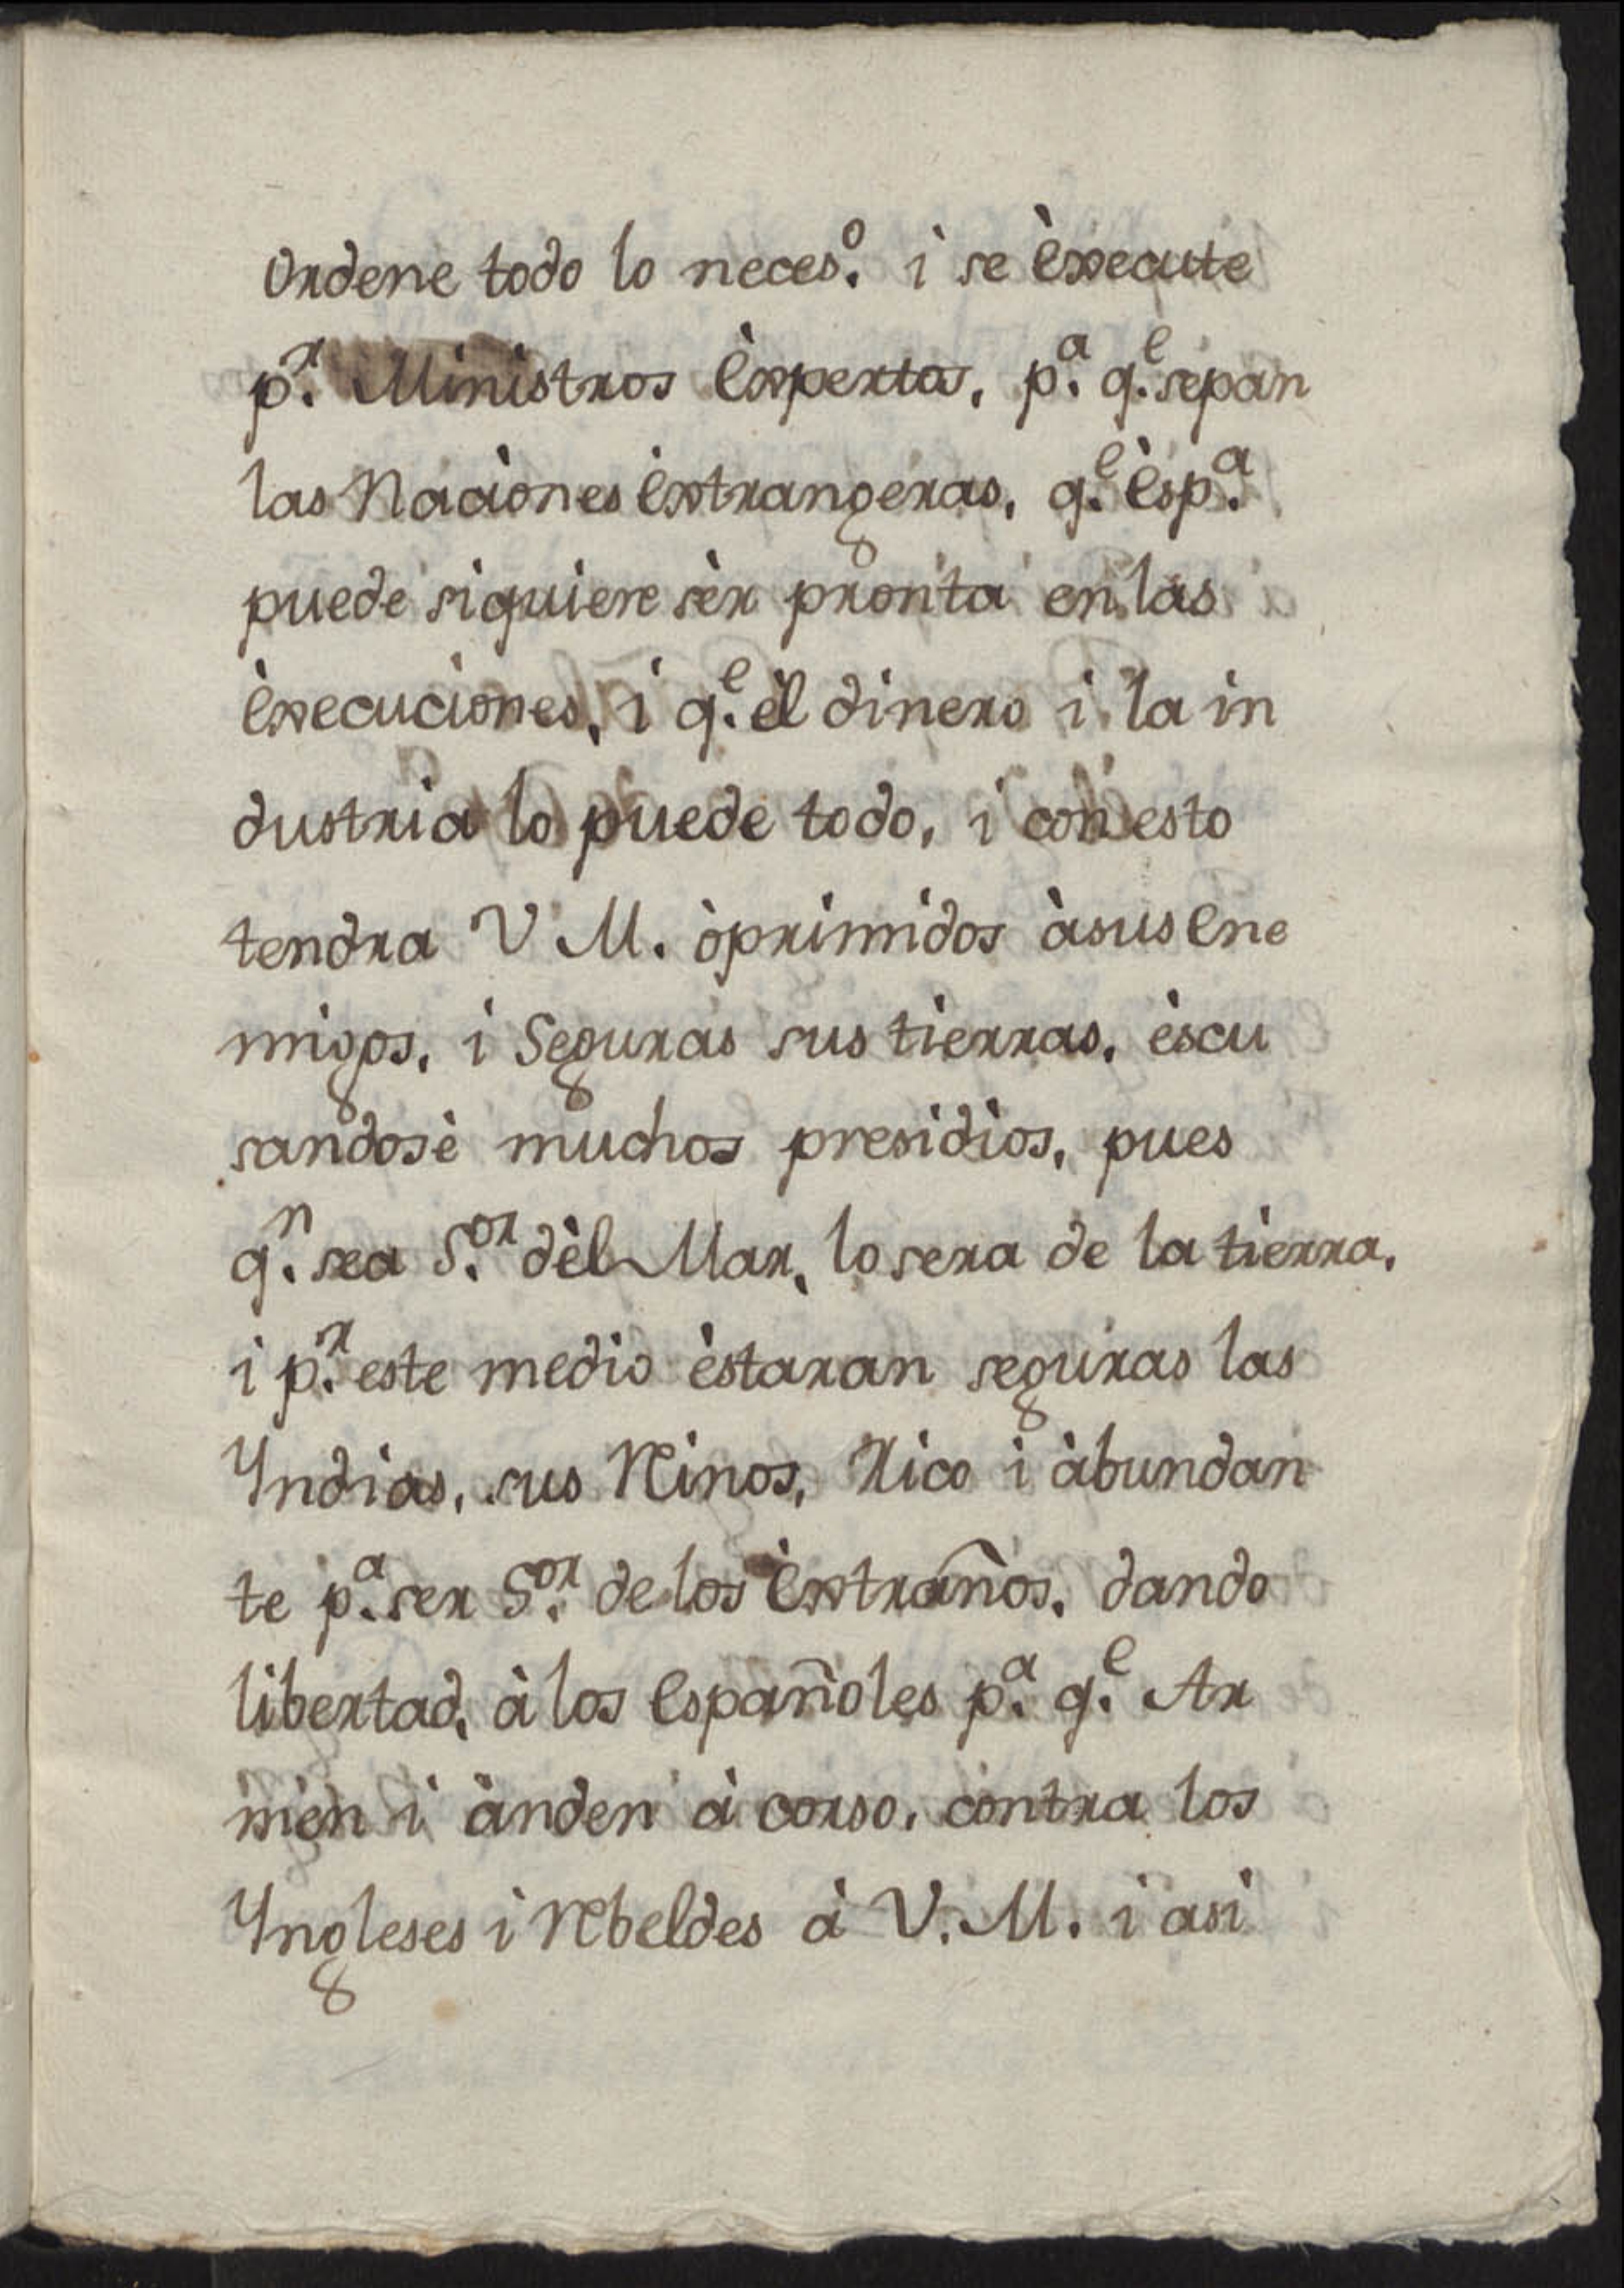 ordene todo lo neces.º i se èxecute
p.r Ministros èxpertos, p.a q.e sepan
las Naciònes èxtrangeras, q.e èsp.a
puede siquiere sèr pronta en las
èxecuciones, i q.e èl dinero i la in
dustria lo puede todo, i con esto
tendra V. M. òprimidos à sus ene
migos, i Seguras sus tierras, èscu
sandosè muchos presidios, pues
q.n sea S.or dèl Mar, lo sera de la tierra,
i p.r este medio èstaran seguras las
Yndias, sus Reinos, Rico i àbundan
te p.a ser S.or de los èxtraños, dando
libertad, à los españoles p.a q.e Ar
men i ànden à corso, contra los
Yngleses i Rebeldes à V. M. i asi